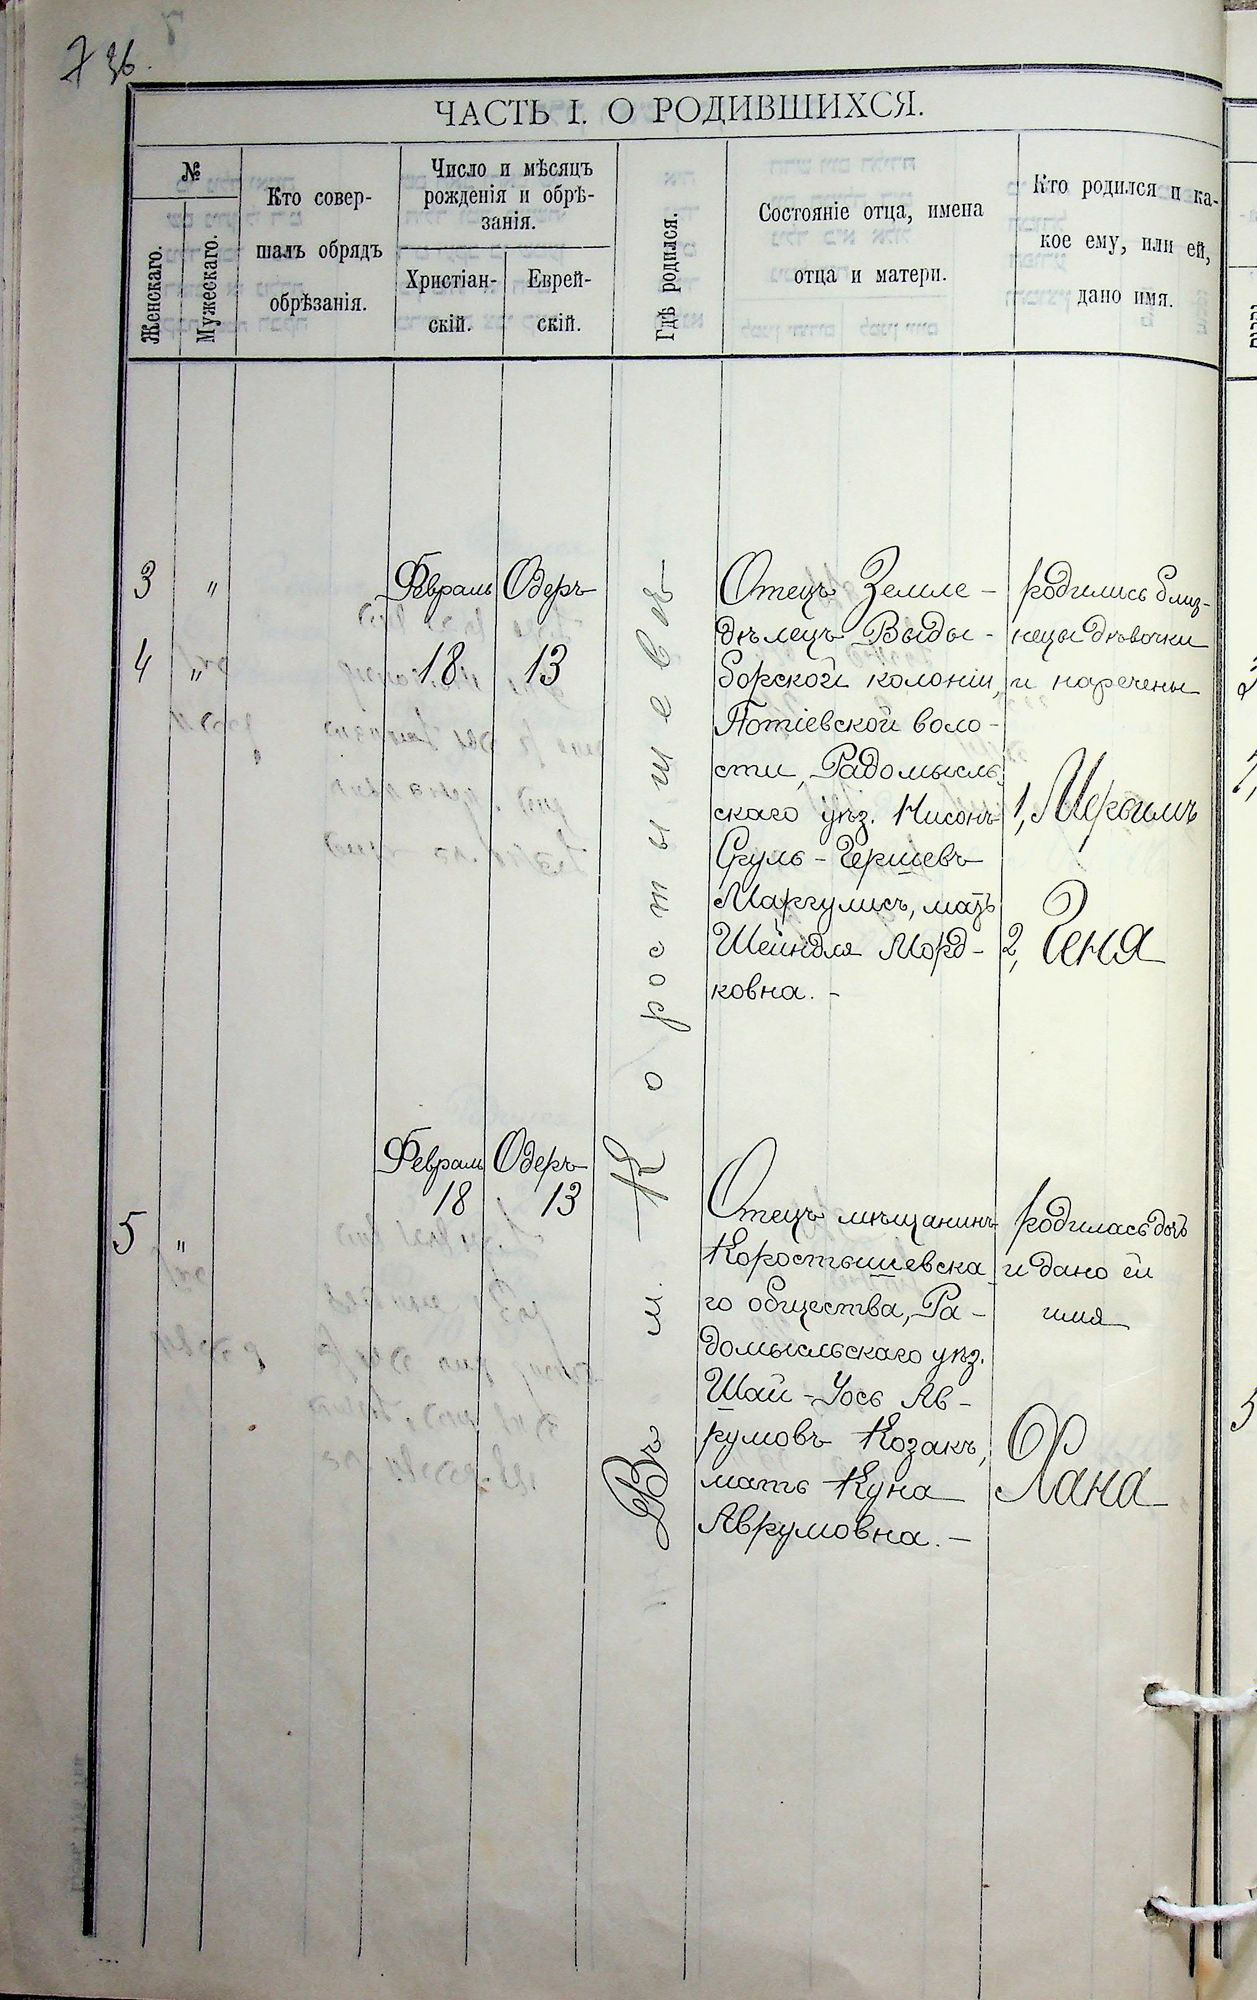 736.
ЧАСТЬ I. О РОДИВШИХСЯ.
№
Женскаго.
Мужескаго.
Кто совер-
шалъ обрядъ
обрѣзанія.
Число и мѣсяцъ
рожденія и обрѣ-
занія.
Христіан-
скій.
Еврей-
скій.
Гдѣ родился.
Состояніе отца, имена
отца и матери.
Кто родился и ка-
кое ему, или ей,
дано имя.
3 "
4 "
Февраль
18
Одеръ
13
Въ м. Коростышевѣ
Отецъ Земле-
дѣлецъ Выды-
борской колоніи,
Потіевской воло-
сти, Радомысль
скаго уѣз. Нисонъ
Сруль-Гершевъ
Маргулисъ, мать
Шейндля Морд-
ковна. -
родились близ-
нецы дѣвочки
и наречены
1, Мерьимъ
2, Геня
5 "
Февраль
18
Одеръ
13
Отецъ мѣщанинъ
Коростышевска
го общества, Ра-
домысльскаго уѣз.
Шай-Уось Ав-
румовъ Козакъ,
мать Куна
Аврумовна. -
родилась дочь
и дано ей
имя
Хана